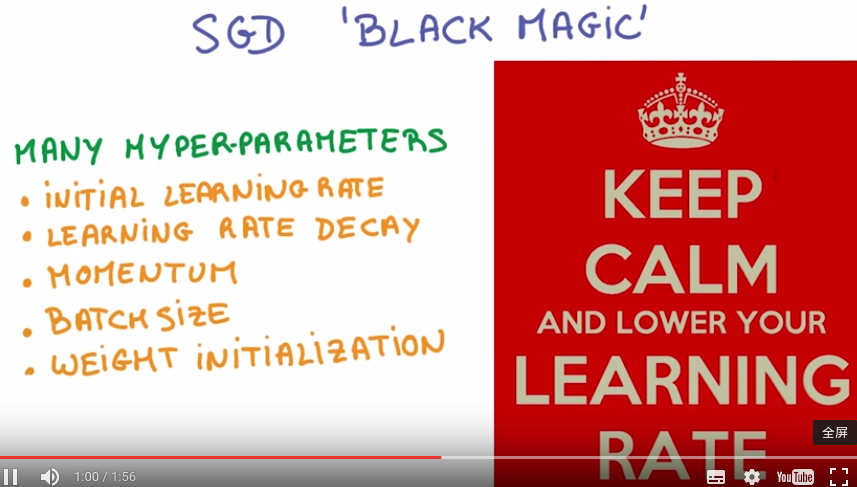 SGD 'BLACK MAGIC'
MANY HYPER-PARAMETERS
• INITIAL LEARNING RATE
• LEARNING RATE DECAY
• MOMENTUM
• BATCH SIZE
• WEIGHT INITIALIZATION
KEEP
CALM
AND LOWER YOUR
LEARNING
RATE
全屏
1:00 / 1:56
YouTube